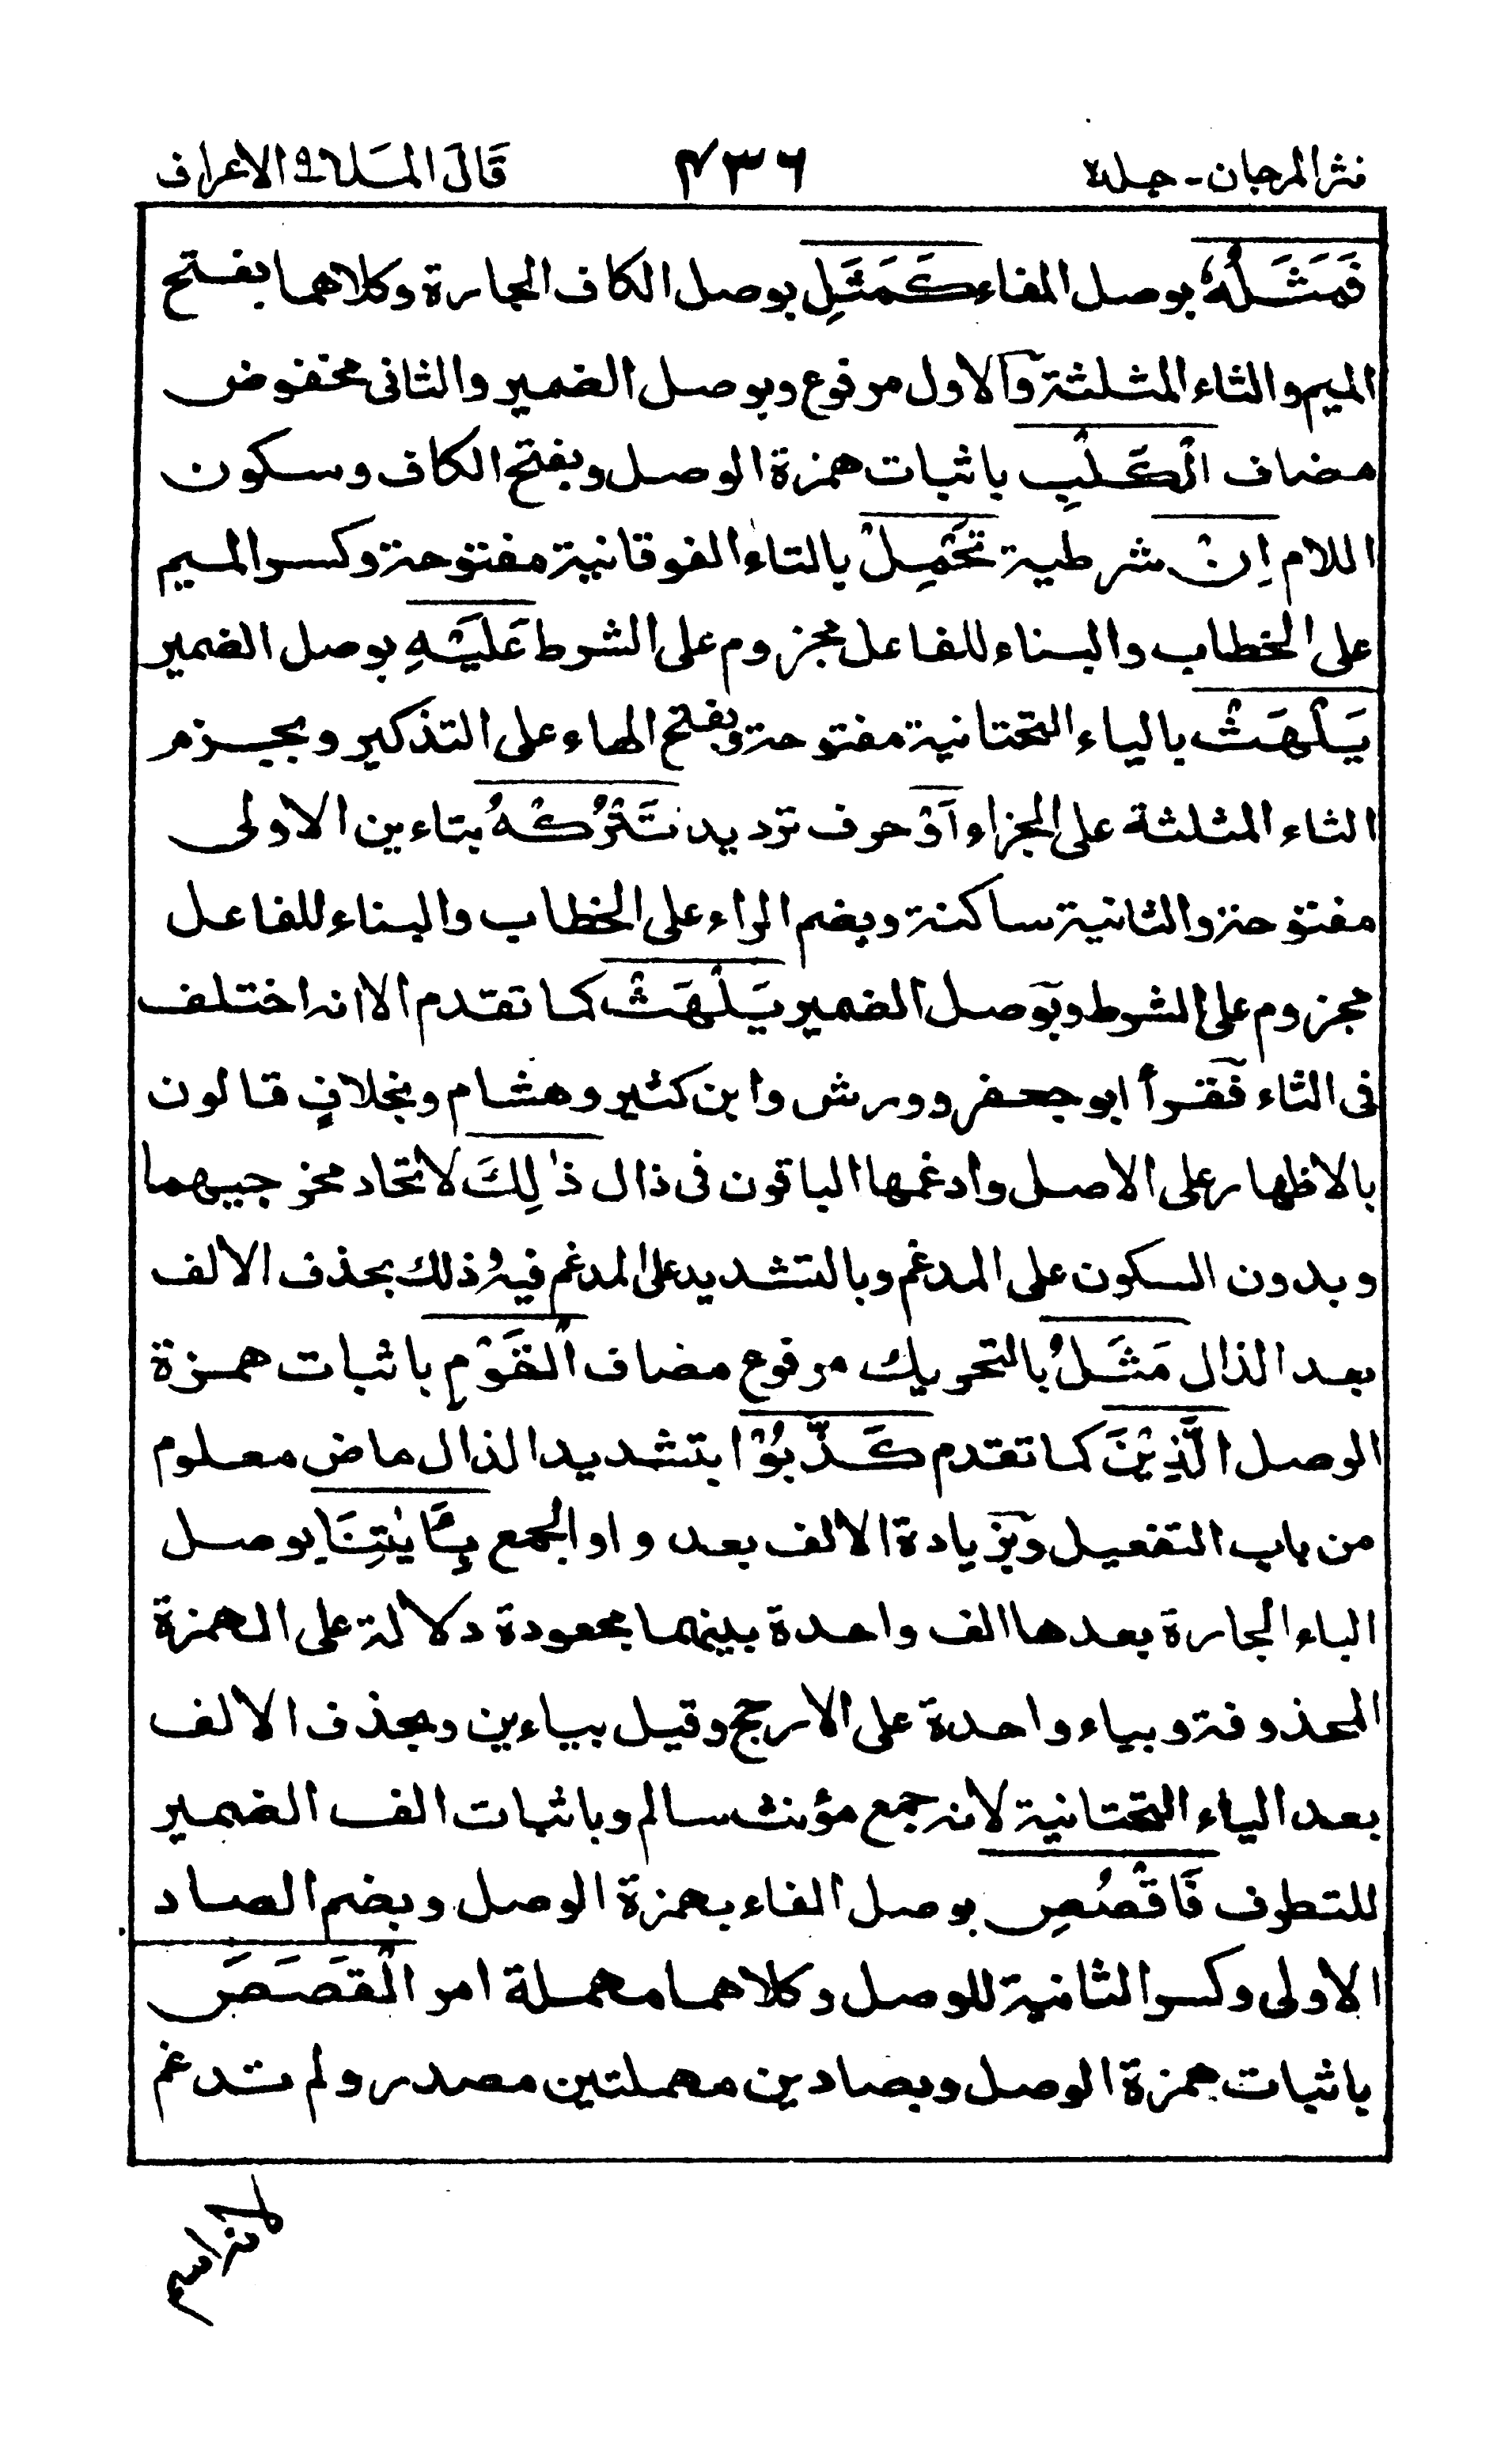 نثر المرجان - جلد ٢ ٤٣٦ قَالَ المَلَا ٩ الاعراف
فَمَثَلُهٗ بوصل الفاء كَمَثَلِ بوصل الكاف الجارة وكلاهما بفتح
الميم والثاء المثلثة والاول مرفوع وبوصل الضمير والثانى مخفوض
مضاف الْكَلْبِ باثبات همزة الوصل وبفتح الكاف وسكون
اللام اِنْ شرطية تَحْمِلْ بالتاء الفوقانية مفتوحة وكسر الميم
على الخطاب والبناء للفاعل مجزوم على الشرط عَلَيْهِ بوصل الضمير
يَلْهَثْ بالياء التحتانية مفتوحة وبفتح الهاء على التذكير وبجزم
الثاء المثلثة على الجزاء اَوْ حرف ترديد تَتْرُكْهُ بتاءين الاولى
مفتوحة والثانية ساكنة وبضم الراء على الخطاب والبناء للفاعل
مجزوم على الشرط وبوصل الضمير يَلْهَثْ كما تقدم الا انه اختلف
فى الثاء فقرأ ابو جعفر وورش وابن كثير وهشام وبخلافٍ قالون
بالاظهار على الاصل وادغمها الباقون فى ذال ذٰلِكَ لاتحاد مخرجيهما
وبدون السكون على المدغم وبالتشديد على المدغم فيه ذلك بحذف الالف
بعد الذال مَثَلُ بالتحريك مرفوع مضاف الْقَوْمِ باثبات همزة
الوصل الَّذِيْنَ كما تقدم كَذَّبُوْا بتشديد الذال ماض معلوم
من باب التفعيل وبزيادة الالف بعد واو الجمع بِاٰيٰتِنَا بوصل
الباء الجارة بعدها الف واحدة بينهما مجعودة دلالة على الهمزة
المحذوفة وبياء واحدة على الارجح وقيل بياءين وبحذف الالف
بعد الياء التحتانية لانه جمع مؤنث سالم وباثبات الف الضمير
للتطرف فَاقْصُصِ بوصل الفاء بهمزة الوصل وبضم الصاد
الاولى وكسر الثانية للوصل وكلاهما مهملة امر الْقَصَصَ
باثبات همزة الوصل وبصادين مهملتين مصدر ولم تدغم